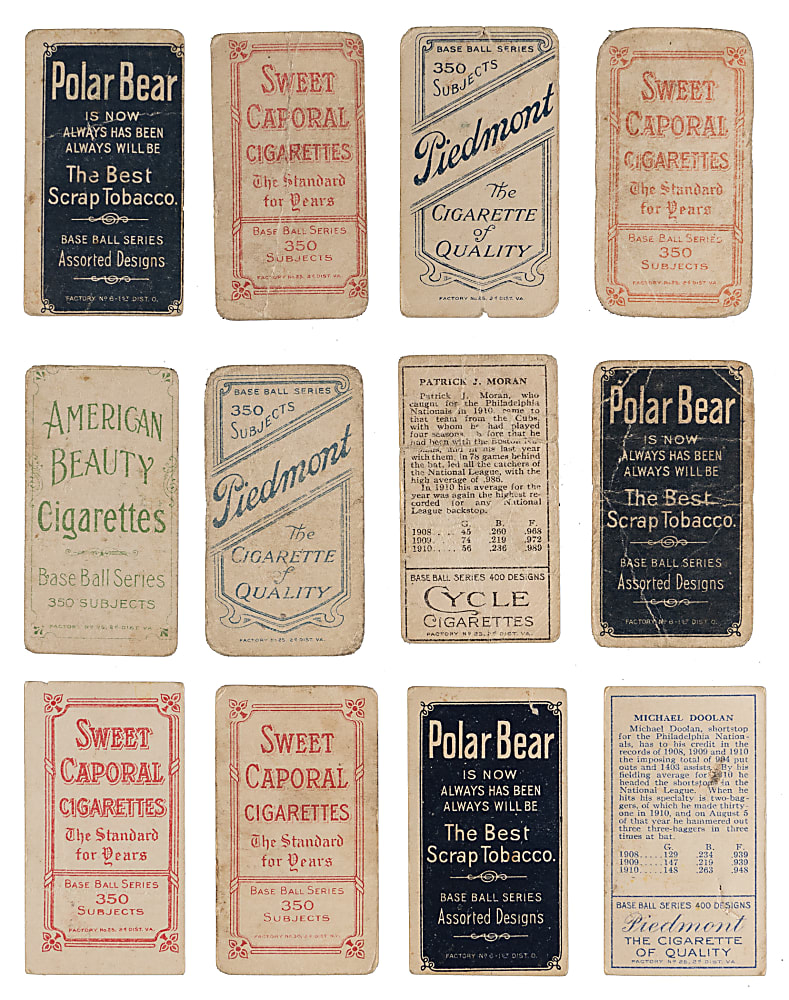 Polar Bear
IS NOW
ALWAYS HAS BEEN
ALWAYS WILL BE
The Best
Scrap Tobacco.
BASE BALL SERIES
Assorted Designs
FACTORY Nº 6-1ST DIST. O.
SWEET
CAPORAL
CIGARETTES
The Standard
for Years
BASE BALL SERIES
350
SUBJECTS
FACTORY No 25, 2d DIST. VA.
BASE BALL SERIES
350
SUBJECTS
Piedmont
The
CIGARETTE
of
QUALITY
FACTORY No 25, 2d DIST. VA.
SWEET
CAPORAL
CIGARETTES
The Standard
for Years
BASE BALL SERIES
350
SUBJECTS
FACTORY No 25, 2d DIST. VA.
AMERICAN
BEAUTY
Cigarettes
Base Ball Series
350 SUBJECTS
FACTORY Nº 25, 2d DIST. VA.
BASE BALL SERIES
350
SUBJECTS
Piedmont
The
CIGARETTE
of
QUALITY
FACTORY Nº 25, 2d DIST. VA.
PATRICK J. MORAN
Patrick J. Moran, who
caught for the Philadelphia
Nationals in 1910, came to
that team from the Cubs,
with whom he had played
four seasons. fore that he
had been with the Boston
and in his last year
with them, in 78 games behind
the bat, led all the catchers of
the National League, with the
high average of .986.
In 1910 his average for the
year was again the highest re-
corded for any National
League backstop.
G. B. F.
1908.... 45 .260 .968
1909.... 74 .219 .972
1910.... 56 .236 .989
BASE BALL SERIES 400 DESIGNS
CYCLE
CIGARETTES
FACTORY Nº 25, 2d DIST. VA.
Polar Bear
IS NOW
ALWAYS HAS BEEN
ALWAYS WILL BE
The Best
Scrap Tobacco.
BASE BALL SERIES
Assorted Designs
FACTORY Nº 6-1ST DIST. O.
SWEET
CAPORAL
CIGARETTES
The Standard
for Years
BASE BALL SERIES
350
SUBJECTS
FACTORY No 25, 2d DIST. VA.
SWEET
CAPORAL
CIGARETTES
The Standard
for Years
BASE BALL SERIES
350
SUBJECTS
FACTORY No 30, 2d DIST. N.Y.
Polar Bear
IS NOW
ALWAYS HAS BEEN
ALWAYS WILL BE
The Best
Scrap Tobacco.
BASE BALL SERIES
Assorted Designs
FACTORY Nº 6-1ST DIST. O.
MICHAEL DOOLAN
Michael Doolan, shortstop
for the Philadelphia Nation-
als, has to his credit in the
records of 1908, 1909 and 1910
the imposing total of 994 put
outs and 1403 assists. By his
fielding average for 1910 he
headed the shortstops in the
National League. When he
hits his specialty is two-bag-
gers, of which he made thirty-
one in 1910, and on August 5
of that year he hammered out
three three-baggers in three
times at bat.
G. B. F.
1908.....129 .234 .939
1909.....147 .219 .939
1910.....148 .263 .948
BASE BALL SERIES 400 DESIGNS
Piedmont
THE CIGARETTE
OF QUALITY
FACTORY Nº 25, 2d DIST. VA.